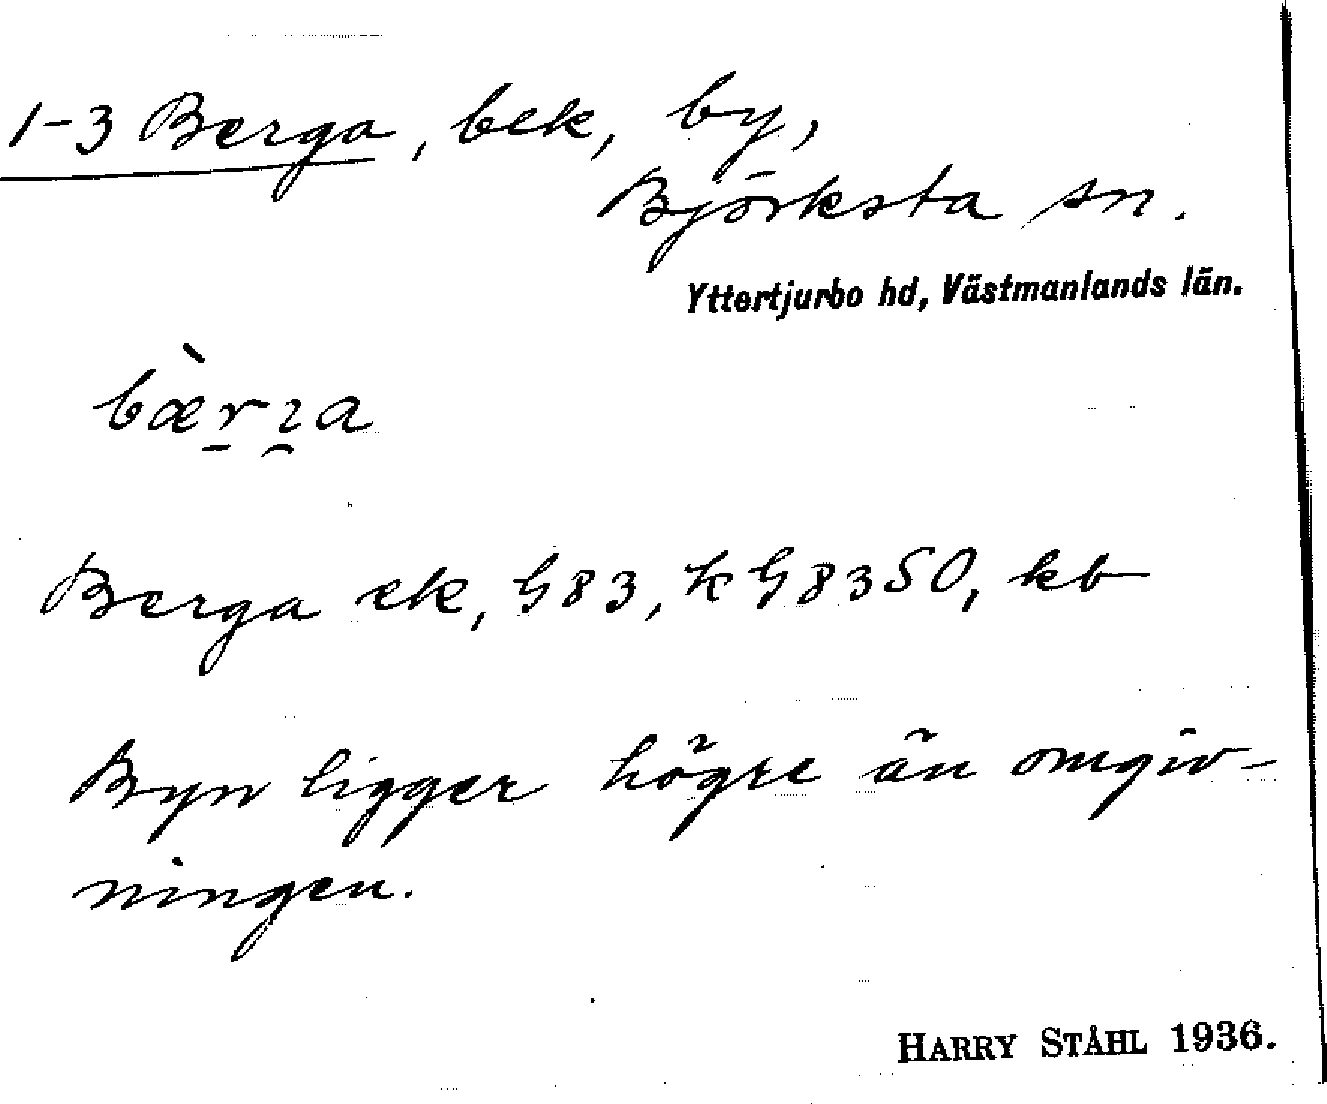 1-3 Berga, bek, by,
Björksta sn.
Yttertjurbo hd, Västmanlands län.
Berga ek, G83, kG8350, kb
Byn ligger högre än omgiv-
ningen.
HARRY STÅHL 1936.